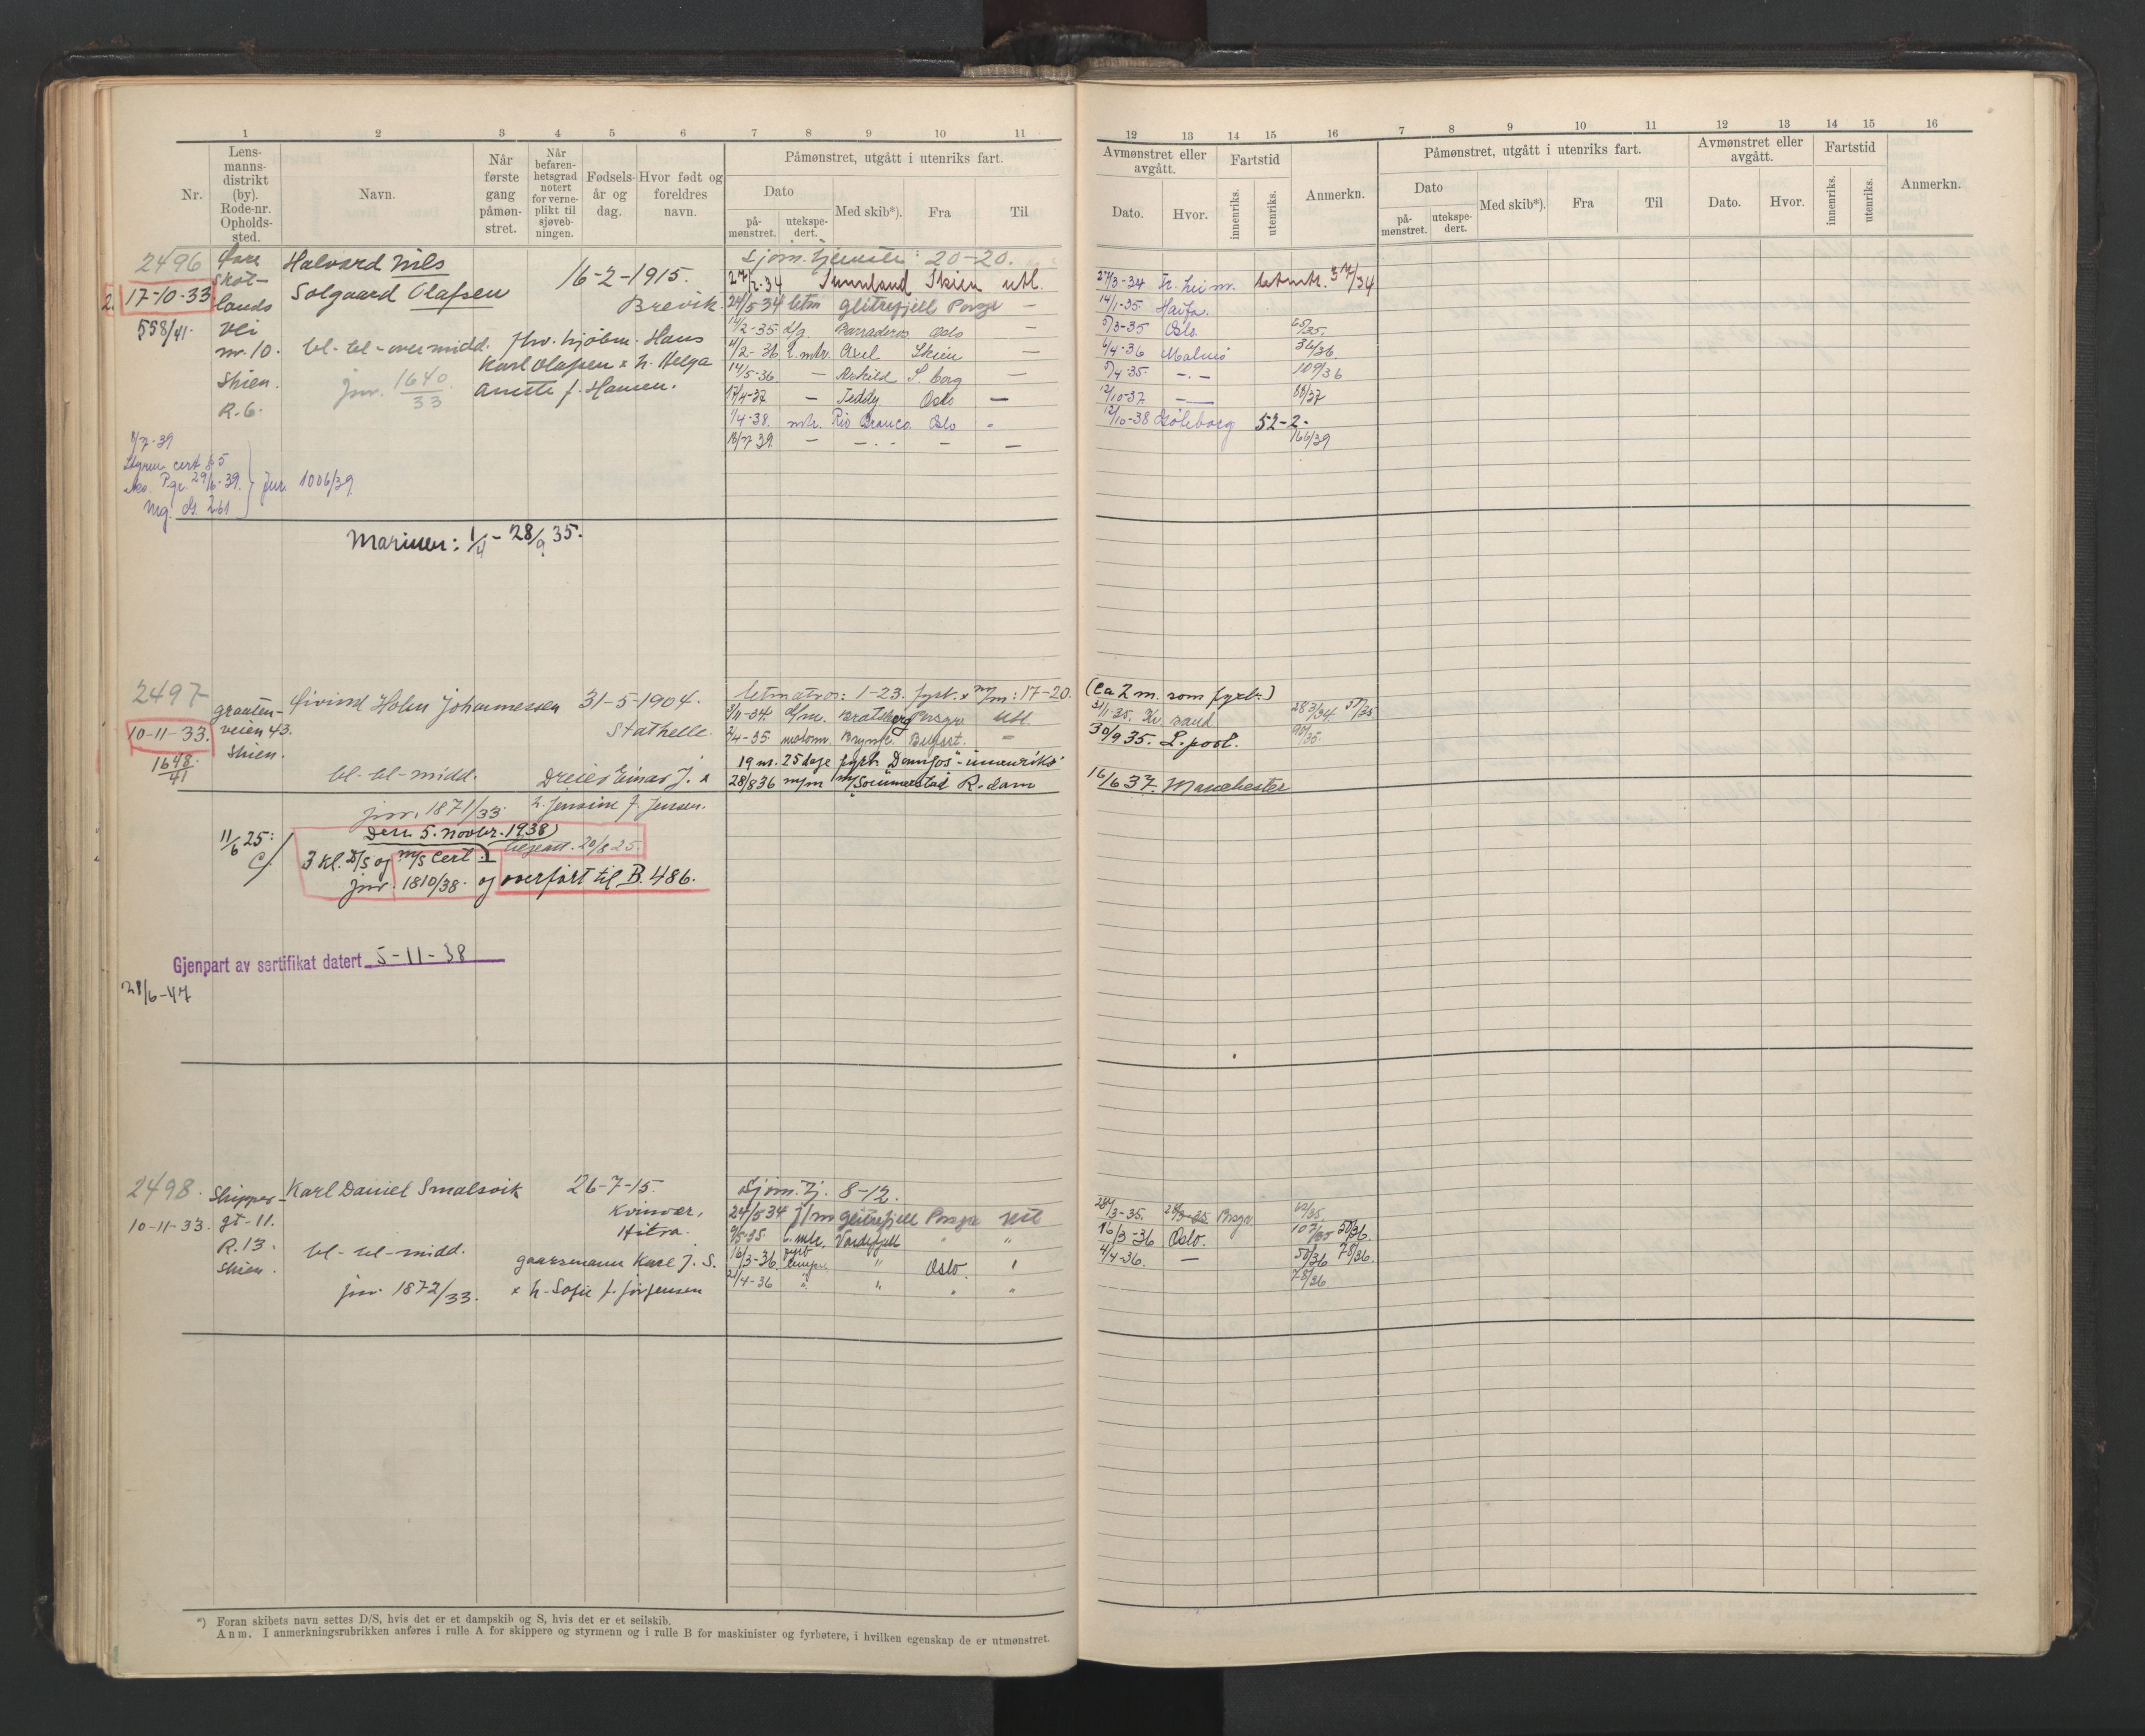 1 2 3 4 5 6 7 8 9 10 11
Nr.
Lens-
manns-
distrikt
(by).
Rode-nr.
Opholds-
sted.
Navn.
Når
første
gang
påmøn-
stret.
Når
befaren-
hetsgrad
notert
for verne-
plikt til
sjøveb-
ningen.
Fødsels-
år og
dag.
Hvor født og
foreldres
navn.
Påmønstret, utgått i utenriks fart.
Dato
på-
mønstret.
utekspe-
dert.
Med skib*).
Fra
Til
2496
17-10-33
558/41
Skot-
lands
vei
nr. 10.
Skien.
R. 6.
Halvard Nils
Solgaard Olafsen
bl-bl-over midd.
jnr. 1640/33
16-2-1915.
Brevik.
Hans
Karl Olafsen x h. Helga
Anette f. Hansen.
Sjøm. tjeneste: 20-20.
27/2-34 Sunnland Skien utl.
24/5 34 letm Glitrefjell Porsgr —
/2-35 d/g Oslo —
/2-36 l. mtr. Axel Skien —
14/5-36 — S.borg —
17/4-37 — Teddy Oslo —
1/4-38. mtr. Rio Branco. Oslo "
18/7 39 — — —
/7-39
cert § 5
29/6-39.
jnr. 1006/39
Marinen: 1/4 - 28/9 35.
2497
10-11-33.
1648/41
Graaten-
veien 43.
Skien.
Øivind Holm Johannessen
bl-bl-midd.
jnr. 1871/33.
31-5-1904.
Stathelle.
Dreier Einar J. x
h. Jensine f. Jensen.
letmatros: 1-23. fyrb. x m/m: 17-20.
/11-34. d/m. Bratsberg Porsgr Utl.
/4-35 motorm. —
19 m. 25 dage fyrb. Damfos - innenriks
28/8 36 m/m m/ Sommerstad R.dam
11/6 25:
Den 5. novbr. 1938)
20/8 25.
3 kl. D/S og m/s cert.
jnr. 1810/38. og overført til B. 486.
Gjenpart av sertifikat datert 5-11-38
21/6-47
2498.
10-11-33.
Skipper-
gt-11.
R. 13.
Skien.
Karl Daniel Smalsvik
bl-bl-midd.
jnr. 1872/33.
26-7-15.
Kvinvær,
Hitra.
gaarsmann Karl J. S.
x h. Sofie f. Jørgensen
Sjøm. tj. 8-12.
24/5 34 j/m Glitrefjell Porsgr utl
/5-35. l. mtr. Vardefjell " "
16/3-36 " Oslo. "
2/4-36 " " " "
*) Foran skibets navn settes D/S, hvis det er et dampskib og S, hvis det er et seilskib.
Anm. I anmerkningsrubrikken anføres i rulle A for skippere og styrmenn og i rulle B for maskinister og fyrbøtere, i hvilken egenskap de er utmønstret.
12 13 14 15 16 7 8 9 10 11 12 13 14 15 16
Avmønstret eller
avgått.
Dato.
Hvor.
Fartstid
innenriks.
utenriks.
Anmerkn.
Påmønstret, utgått i utenriks fart.
Dato
på-
mønstret.
utekspe-
dert.
Med skib*).
Fra
Til
Avmønstret eller
avgått.
Dato.
Hvor.
Fartstid
innenriks.
utenriks.
Anmerkn.
27/3-34
14/1-35. Haifa.
/3-35 Oslo. 65/35.
6/4-36 Malmö 36/36
/4 35. -.- 109/36
12/10-37. — 88/37
12/10-38 Göteborg 52-2.
166/39
(Ca 2 m. som fyrb.)
/1-35. Kr. sand 283/34
30/9 35. L.pool. 90/35.
16/6 37. Manchester
28/3-35. Porsgr 62/35.
16/3-36 Oslo. 50/36.
4/4-36. — 50/36 78/36.
78/36